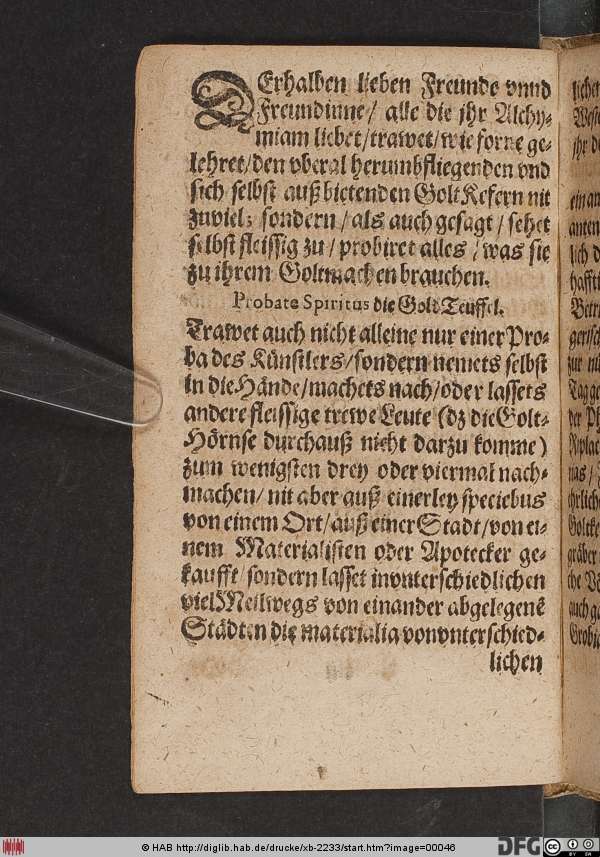 DErhalben lieben Freunde vnnd
Freundinne/ alle die jhr Alchy-
miam liebet/trawet/wie forne ge-
lehret/den vberal herumbfliegenden vnd
sich selbst außbietenden GoltKefern nit
zuviel; sondern/als auch gesagt/sehet
selbst fleissig zu/probiret alles/was sie
zu ihrem Goltmachen brauchen.
Probate Spiritus die Gold Teuffel.
Trawet auch nicht alleine nur einer Pro-
ba des Künstlers/sondern nemets selbst
in die Hände/machets nach/oder lassets
andere fleissige trewe Leute (dz die Golt-
Hörnse durchauß nicht darzu komme)
zum wenigsten drey oder viermal nach-
machen/nit aber auß einerley speciebus
von einem Ort/auß einer Stadt/von ei-
nem Materialisten oder Apotecker ge-
kaufft/sondern lasset invnterschiedlichen
viel Meilwegs von einander abgelegenē
Städten die materialia von vnterschied-
lichen
© HAB http://diglib.hab.de/drucke/xb-2233/start.htm?image=00046
DFG